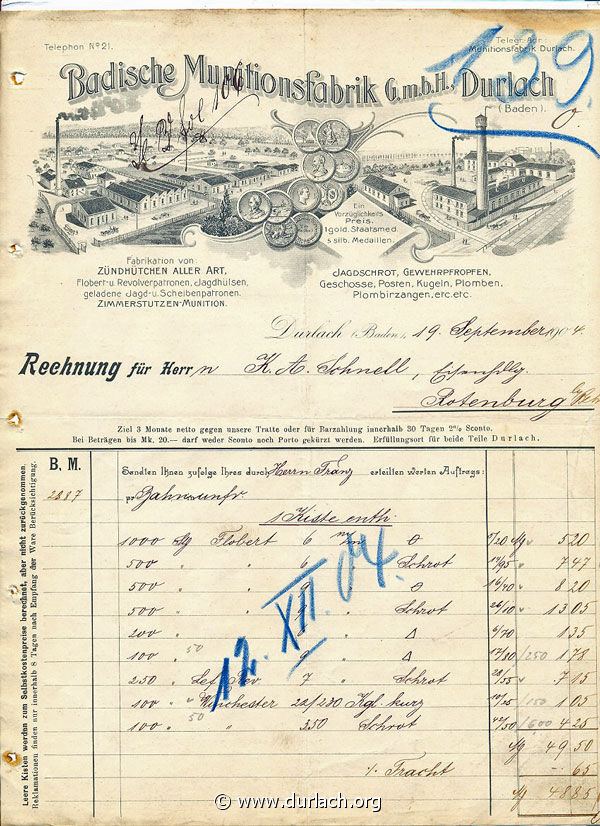 Telephon № 21.
Telegr. Adr.:
Munitionsfabrik Durlach.
Badische Munitionsfabrik G.m.b.H., Durlach
(Baden).
139
Ein
Vorzüglichkeits
Preis.
1 gold. Staatsmed.
5 silb. Medaillen.
Fabrikation von:
ZÜNDHÜTCHEN ALLER ART,
Flobert-u. Revolverpatronen, Jagdhülsen,
geladene Jagd-u. Scheibenpatronen.
ZIMMERSTUTZEN-MUNITION.
JAGDSCHROT, GEWEHRPFROPFEN,
Geschosse, Posten, Kugeln, Plomben,
Plombirzangen, etc. etc.
Durlach (Baden), 19. September 1904.
Rechnung für Herrn K. A. Schnell, Eisenhdlg.
Rotenburg
Ziel 3 Monate netto gegen unsere Tratte oder für Barzahlung innerhalb 30 Tagen 2% Sconto.
Bei Beträgen bis Mk. 20.— darf weder Sconto noch Porto gekürzt werden. Erfüllungsort für beide Teile Durlach.
Leere Kisten werden zum Selbstkostenpreise berechnet, aber nicht zurückgenommen.
Reklamationen finden nur innerhalb 8 Tagen nach Empfang der Ware Berücksichtigung.
B. M.
2887
Sandten Ihnen zufolge Ihres durch Herrn Franz erteilten werten Auftrags:
pr Bahn unfr
1 Kiste enth:
1000 Flobert 6 m/m 5 20
500 " 6 " Schrot 17/95 7 47
500 " 9 " 16/40 8 20
500 " 9 " Schrot 26/10 13 05
200 " 8 " Δ 6/70 1 35
100 50 " 9 " Δ 17/80 /250 1 78
250 " 7 " Schrot 28/55 7 15
100 " Winchester 22/230 Kgl. kurz 10/25 /150 1 03
100 50 " " 350 Schrot 42/50 /600 4 25
49 50
% Fracht – 65
48 85
12. XII. 04.
© www.durlach.org